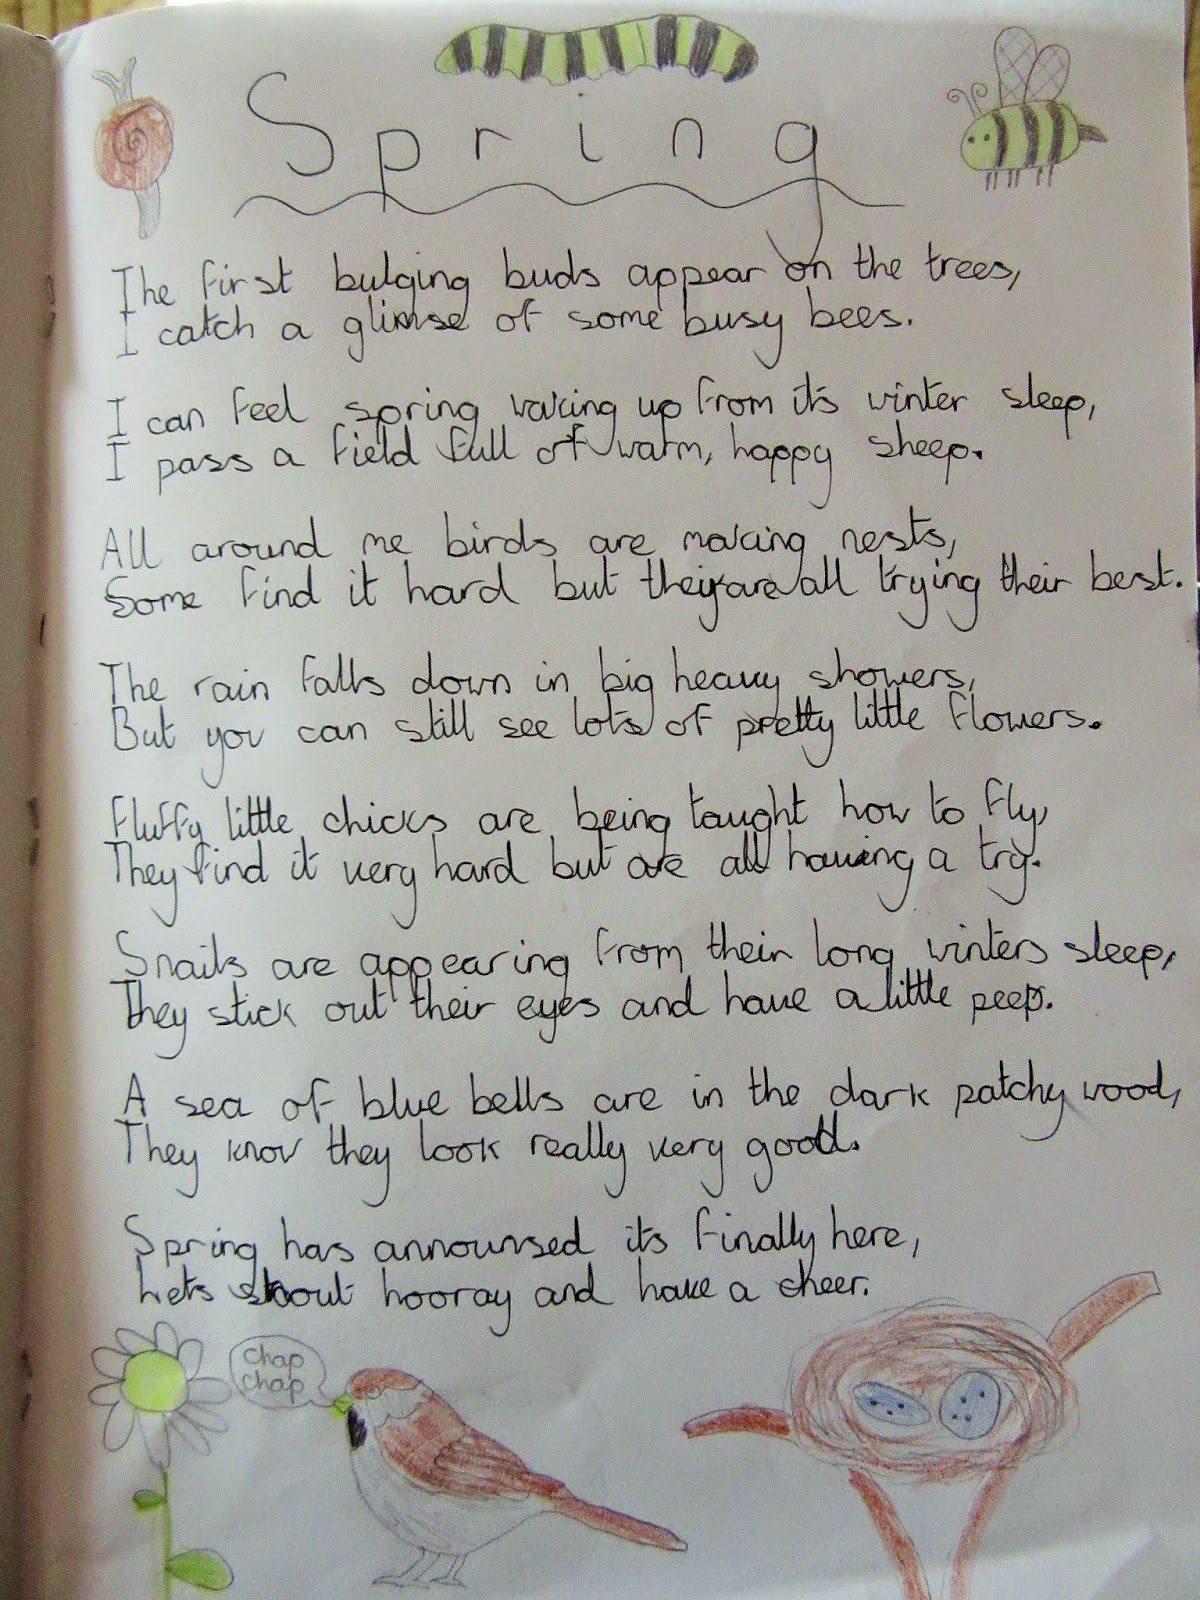 Spring
The first bulging buds appear on the trees,
I catch a glimse of some busy bees.
I can feel spring waking up from its winter sleep,
I pass a field full of warm, happy sheep.
All around me birds are making nests,
Some find it hard but they are all trying their best.
The rain falls down in big heavy showers,
But you can still see lots of pretty little flowers.
Fluffy little chicks are being taught how to fly,
They find it very hard but are all having a try.
Snails are appearing from their long winters sleep,
They stick out their eyes and have a little peep.
A sea of blue bells are in the dark patchy wood,
They know they look really very good.
Spring has announsed its finally here,
Lets shout hooray and have a cheer.
chap
chap